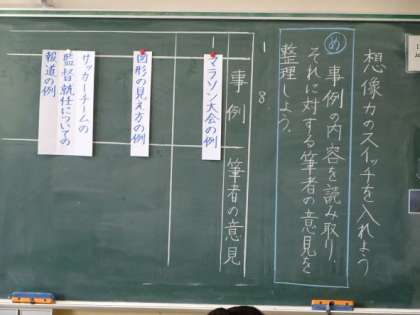 想像力のスイッチを入れよう
め 事例の内容を読み取り、
それに対する筆者の意見を
整理しよう。
1 8
事例
筆者の意見
マラソン大会の例
図形の見え方の例
サッカーチームの
監督就任についての
報道の例